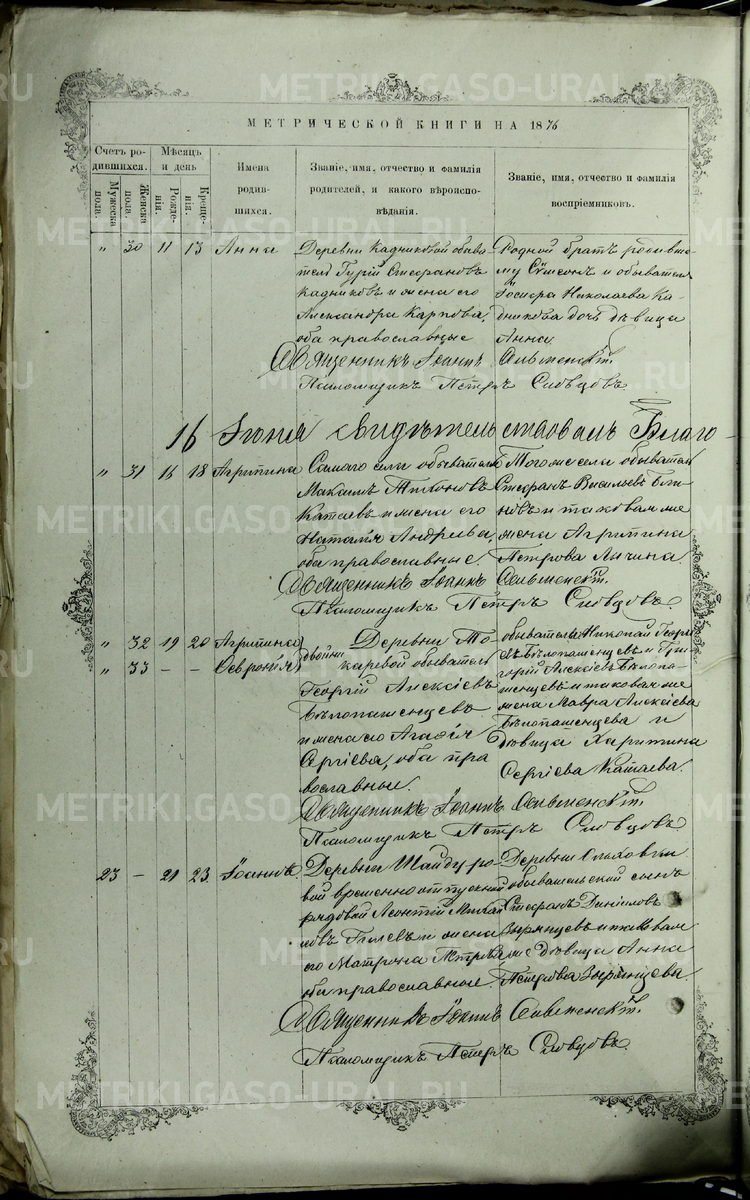 МЕТРИЧЕСКОЙ КНИГИ НА 1876
Счетъ родившихся.
Мѣсяцъ и день
Мужеска пола.
Женска пола.
Рожденія.
Крещенія.
Имена родившихся.
Званіе, имя, отчество и фамилія родителей, и какого вѣроисповѣданія.
Званіе, имя, отчество и фамилія воспріемниковъ.
" 30 11 13 Анна
Деревни Кадниковой обыва
тель Гурій Стефановъ
Кадниковъ и жена его
Александра Карпова,
оба православные
Родной братъ родивше
му Сѵмеонъ и обывателя
Іосифа Николаева Ка-
дникова дочь дѣвица
Анна
Священникъ Іоаннъ
Псаломщикъ Петръ Словцовъ.
16 Іюня свидѣтельствовалъ Благо-
" 31 16 18 Агрипина
Самаго села обыватель
Максимъ Тихоновъ
Катаевъ и жена его
Наталія Андреева,
оба православные.
Того же села обыватель
Стефанъ Васильевъ
и таковая же
жена Агрипина
Петрова
Священникъ Іоаннъ
Псаломщикъ Петръ Словцовъ.
" 32 19 20 Агрипина
" 33 — — Феврония
двойни
Деревни То
каревой обыватель
Георгій Алексіевъ
Бѣлопашенцевъ
и жена его Агафія
Сергіева, оба пра
вославные.
обыватели Николай Георгі
евъ Бѣлопашенцевъ и Гри
горій Алексіевъ Бѣлопа
шенцевъ и таковая же
жена Мавра Алексіева
Бѣлопашенцева и
дѣвица Харитина
Сергіева Катаева.
Священникъ Іоаннъ
Псаломщикъ Петръ Словцовъ.
23 — 21 23 Іоаннъ.
Деревни Шайдуро
вой временно отпускной
рядовой Леонтій Михай
ловъ и жена
его Матрона Петрова
оба православные.
Деревни Ольховки
обывательскій сынъ
Стефанъ Даниловъ
Зырянцевъ и таковая
же дѣвица Анна
Зырянцева.
Священникъ Іоаннъ
Псаломщикъ Петръ Словцовъ.
METRIKI.GASO-URAL.RU